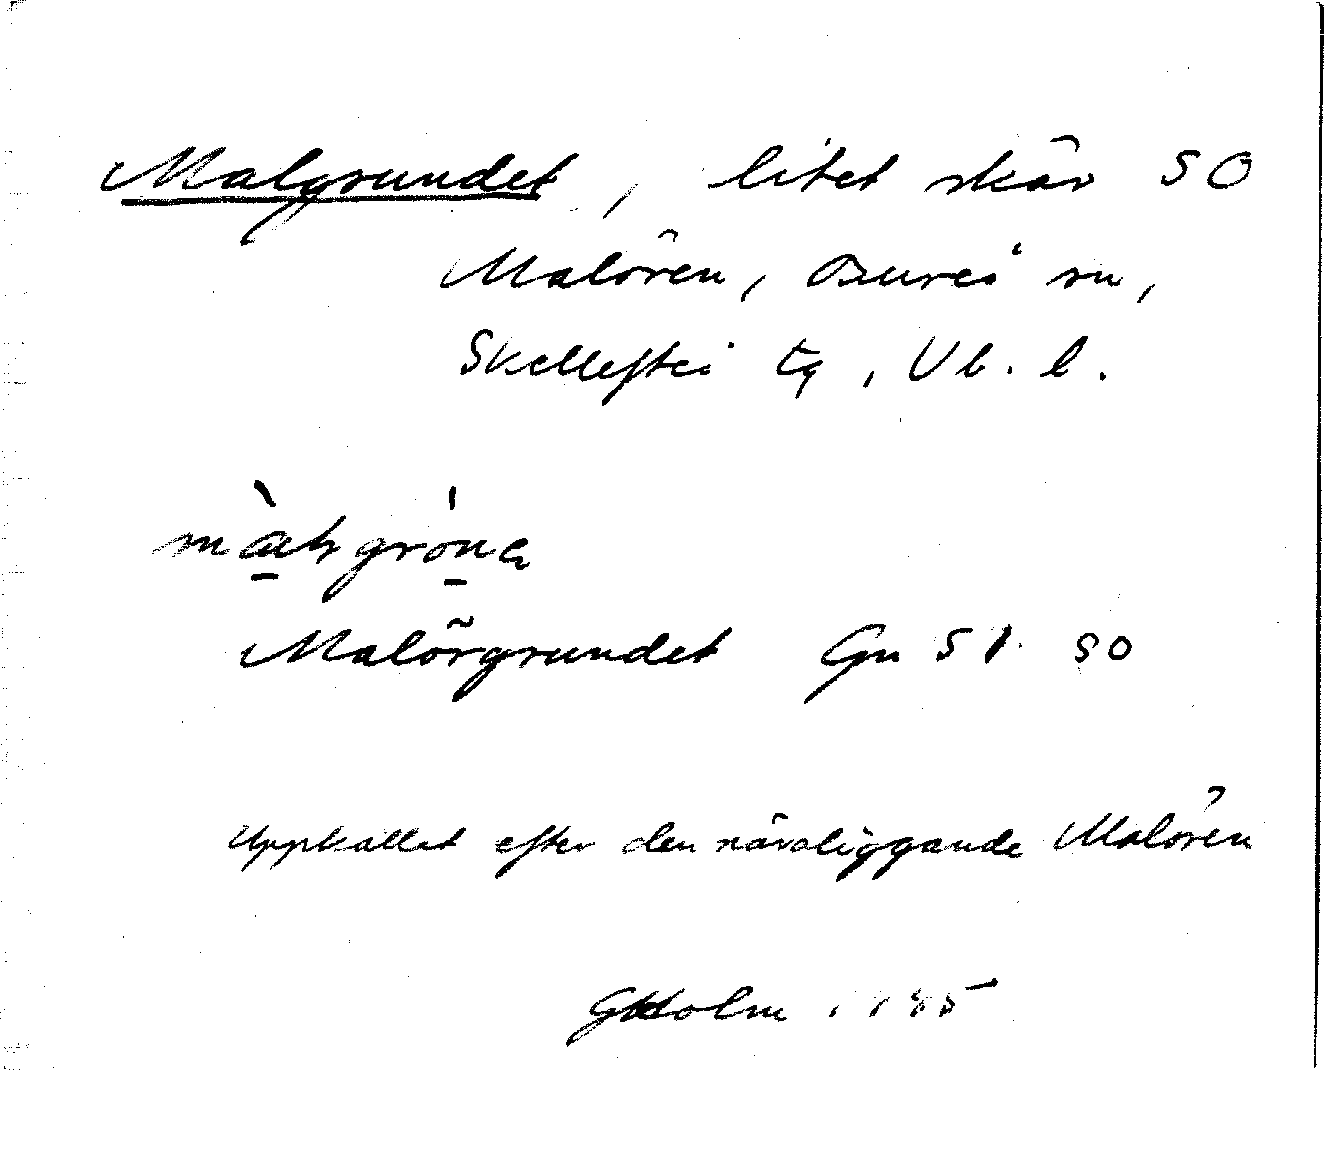 Malgrundet, litet skär SO
Malören, Bureå sn,
Skellefteå tg, Vb. l.
Malörgrundet Gn 51 SO
Uppkallat efter den närliggande Malören
GHolm 1985